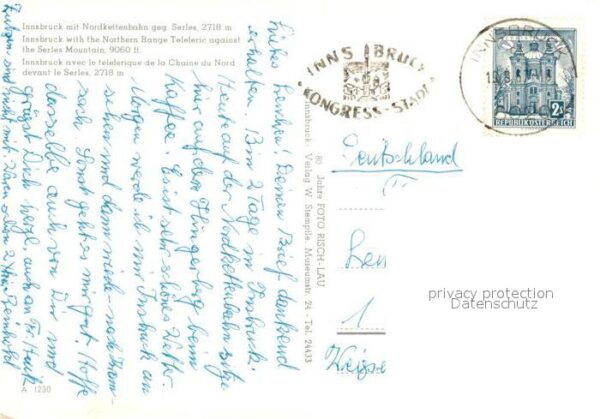 Innsbruck mit Nordkettenbahn geg. Serles, 2718 m
Innsbruck with the Northern Range Teleferic against
the Serles Mountain, 9060 ft.
Innsbruck avec le teleferique de la Chaine du Nord
devant le Serles, 2718 m
Liebes Lenchen! Deinen Brief dankend
erhalten. Bin 2 Tage in Insbruck.
Heute auf der Nordkettenbahn sitze
hier auf dem Hungerburg beim
Kaffee. Es ist sehr schönes Wetter.
Morgen werde ich mir Insbruck an
sehen und dann wieder nach
Sonst geht es mir gut. Hoffe
dasselbe auch von Dir und
grüsst Dich herzl. auch an Fr.
Reinhold
A 1230
80 Jahre FOTO RISCH-LAU
Innsbruck Verlag W. Stempfle, Museumstr. 24 - Tel. 24433
INNSBRUCK
KONGRESS-STADT
INNSBRUCK
REPUBLIK ÖSTERREICH
Deutschland
Len
1
privacy protection
Datenschutz